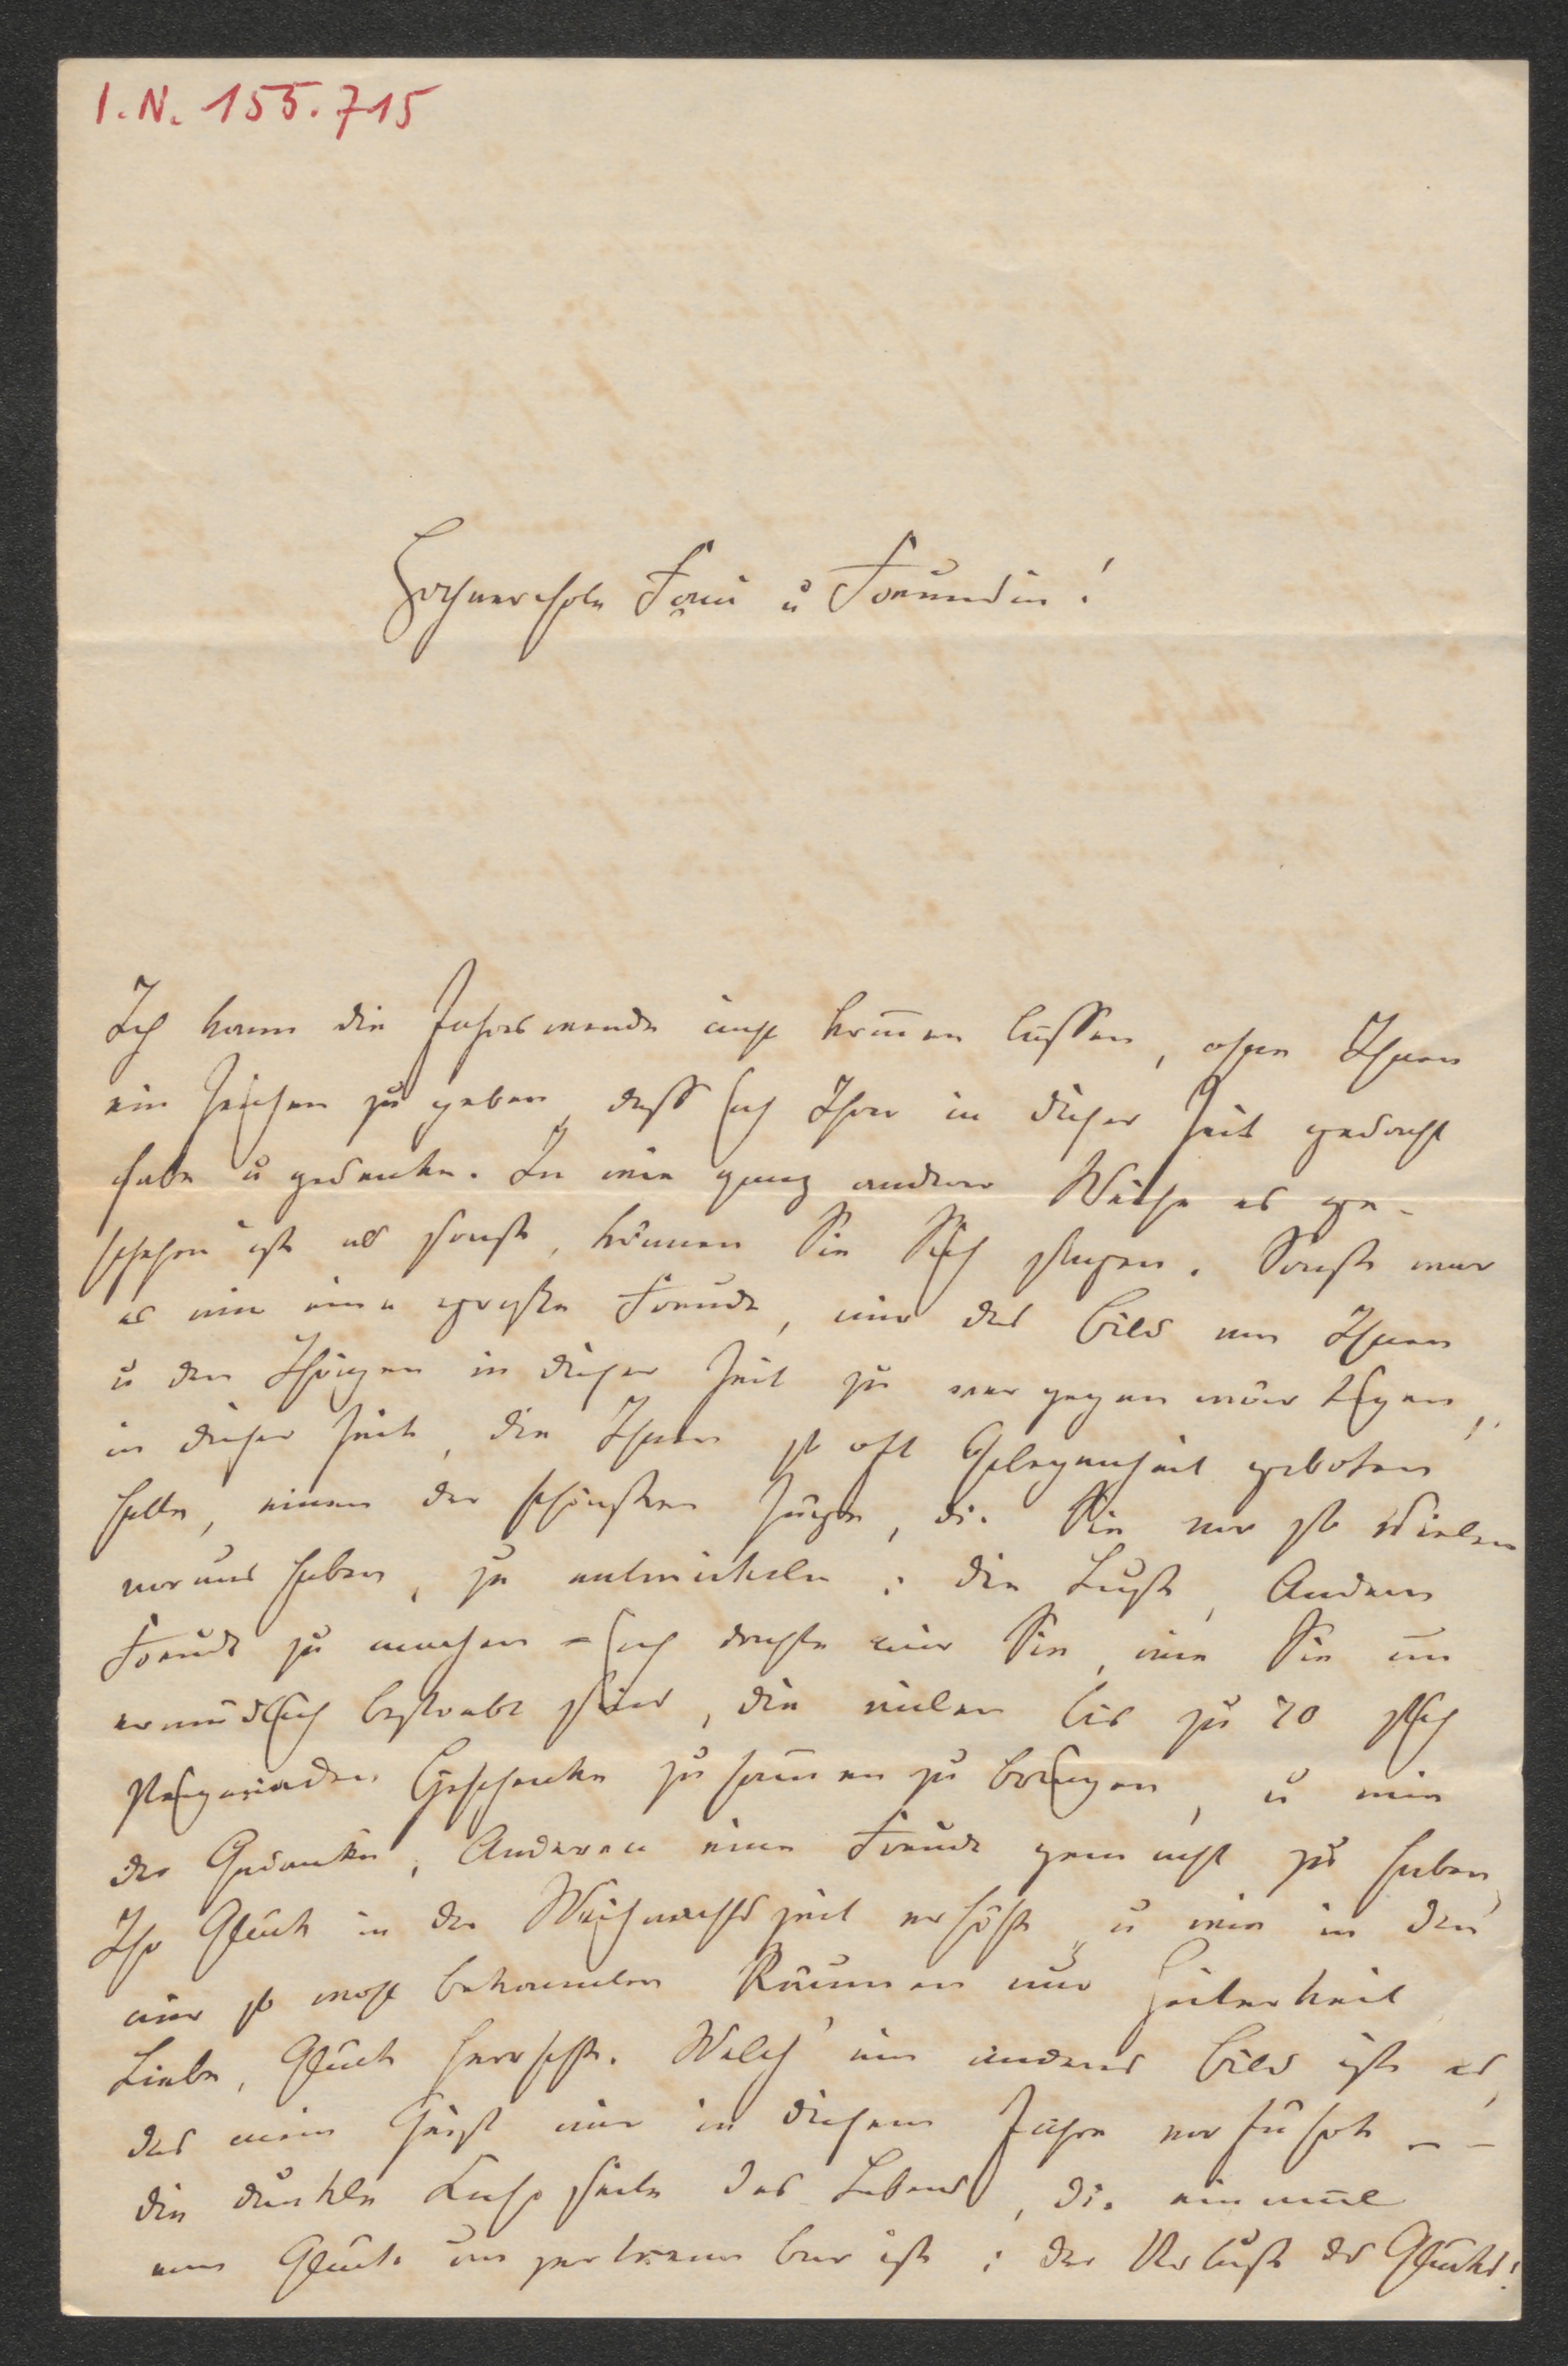 I.N. 155.715
Hochverehrte Frau u Freundin!
Ich kann die Jahreswende nicht kom̄en lassen, ohne Ihnen
ein Zeichen zu geben, dass ich Ihrer in dieser Zeit gedacht
habe u gedenke. In wie ganz anderer Weise es ge-
schehen ist als sonst, können Sie Sich sagen. Sonst war
es mir eine große Freude, mir das Bild von Ihnen
u den Ihrigen in dieser Zeit zu vergegenwärtigen,
in dieser Zeit, die Ihnen so oft Gelegenheit geboten
hatte, einen der schönsten Züge, die Sie vor so Vielen
voraus haben, zu entwickeln: die Lust, Andern
Freude zu machen – ich dachte mir Sie, wie Sie un
ermüdlich bestrebt sind, die vielen bis zu 70 sich
steigernden Geschenke zusam̄en zu bringen, u wie
der Gedanke, Anderen eine Freude gemacht zu haben,
Ihr Glück in der Weihnachtszeit erhöht, u wie in den
mir so wohl bekannten Räumen nur Heiterkeit
Liebe, Glück herrscht. Welch' ein anderes Bild ist es,
das mein Geist mir in diesem Jahre vorführt – –
die dunkle Kehrseite des Lebens, die einmal
vom Glücke unzertrennbar ist: der Verlust des Glückes!